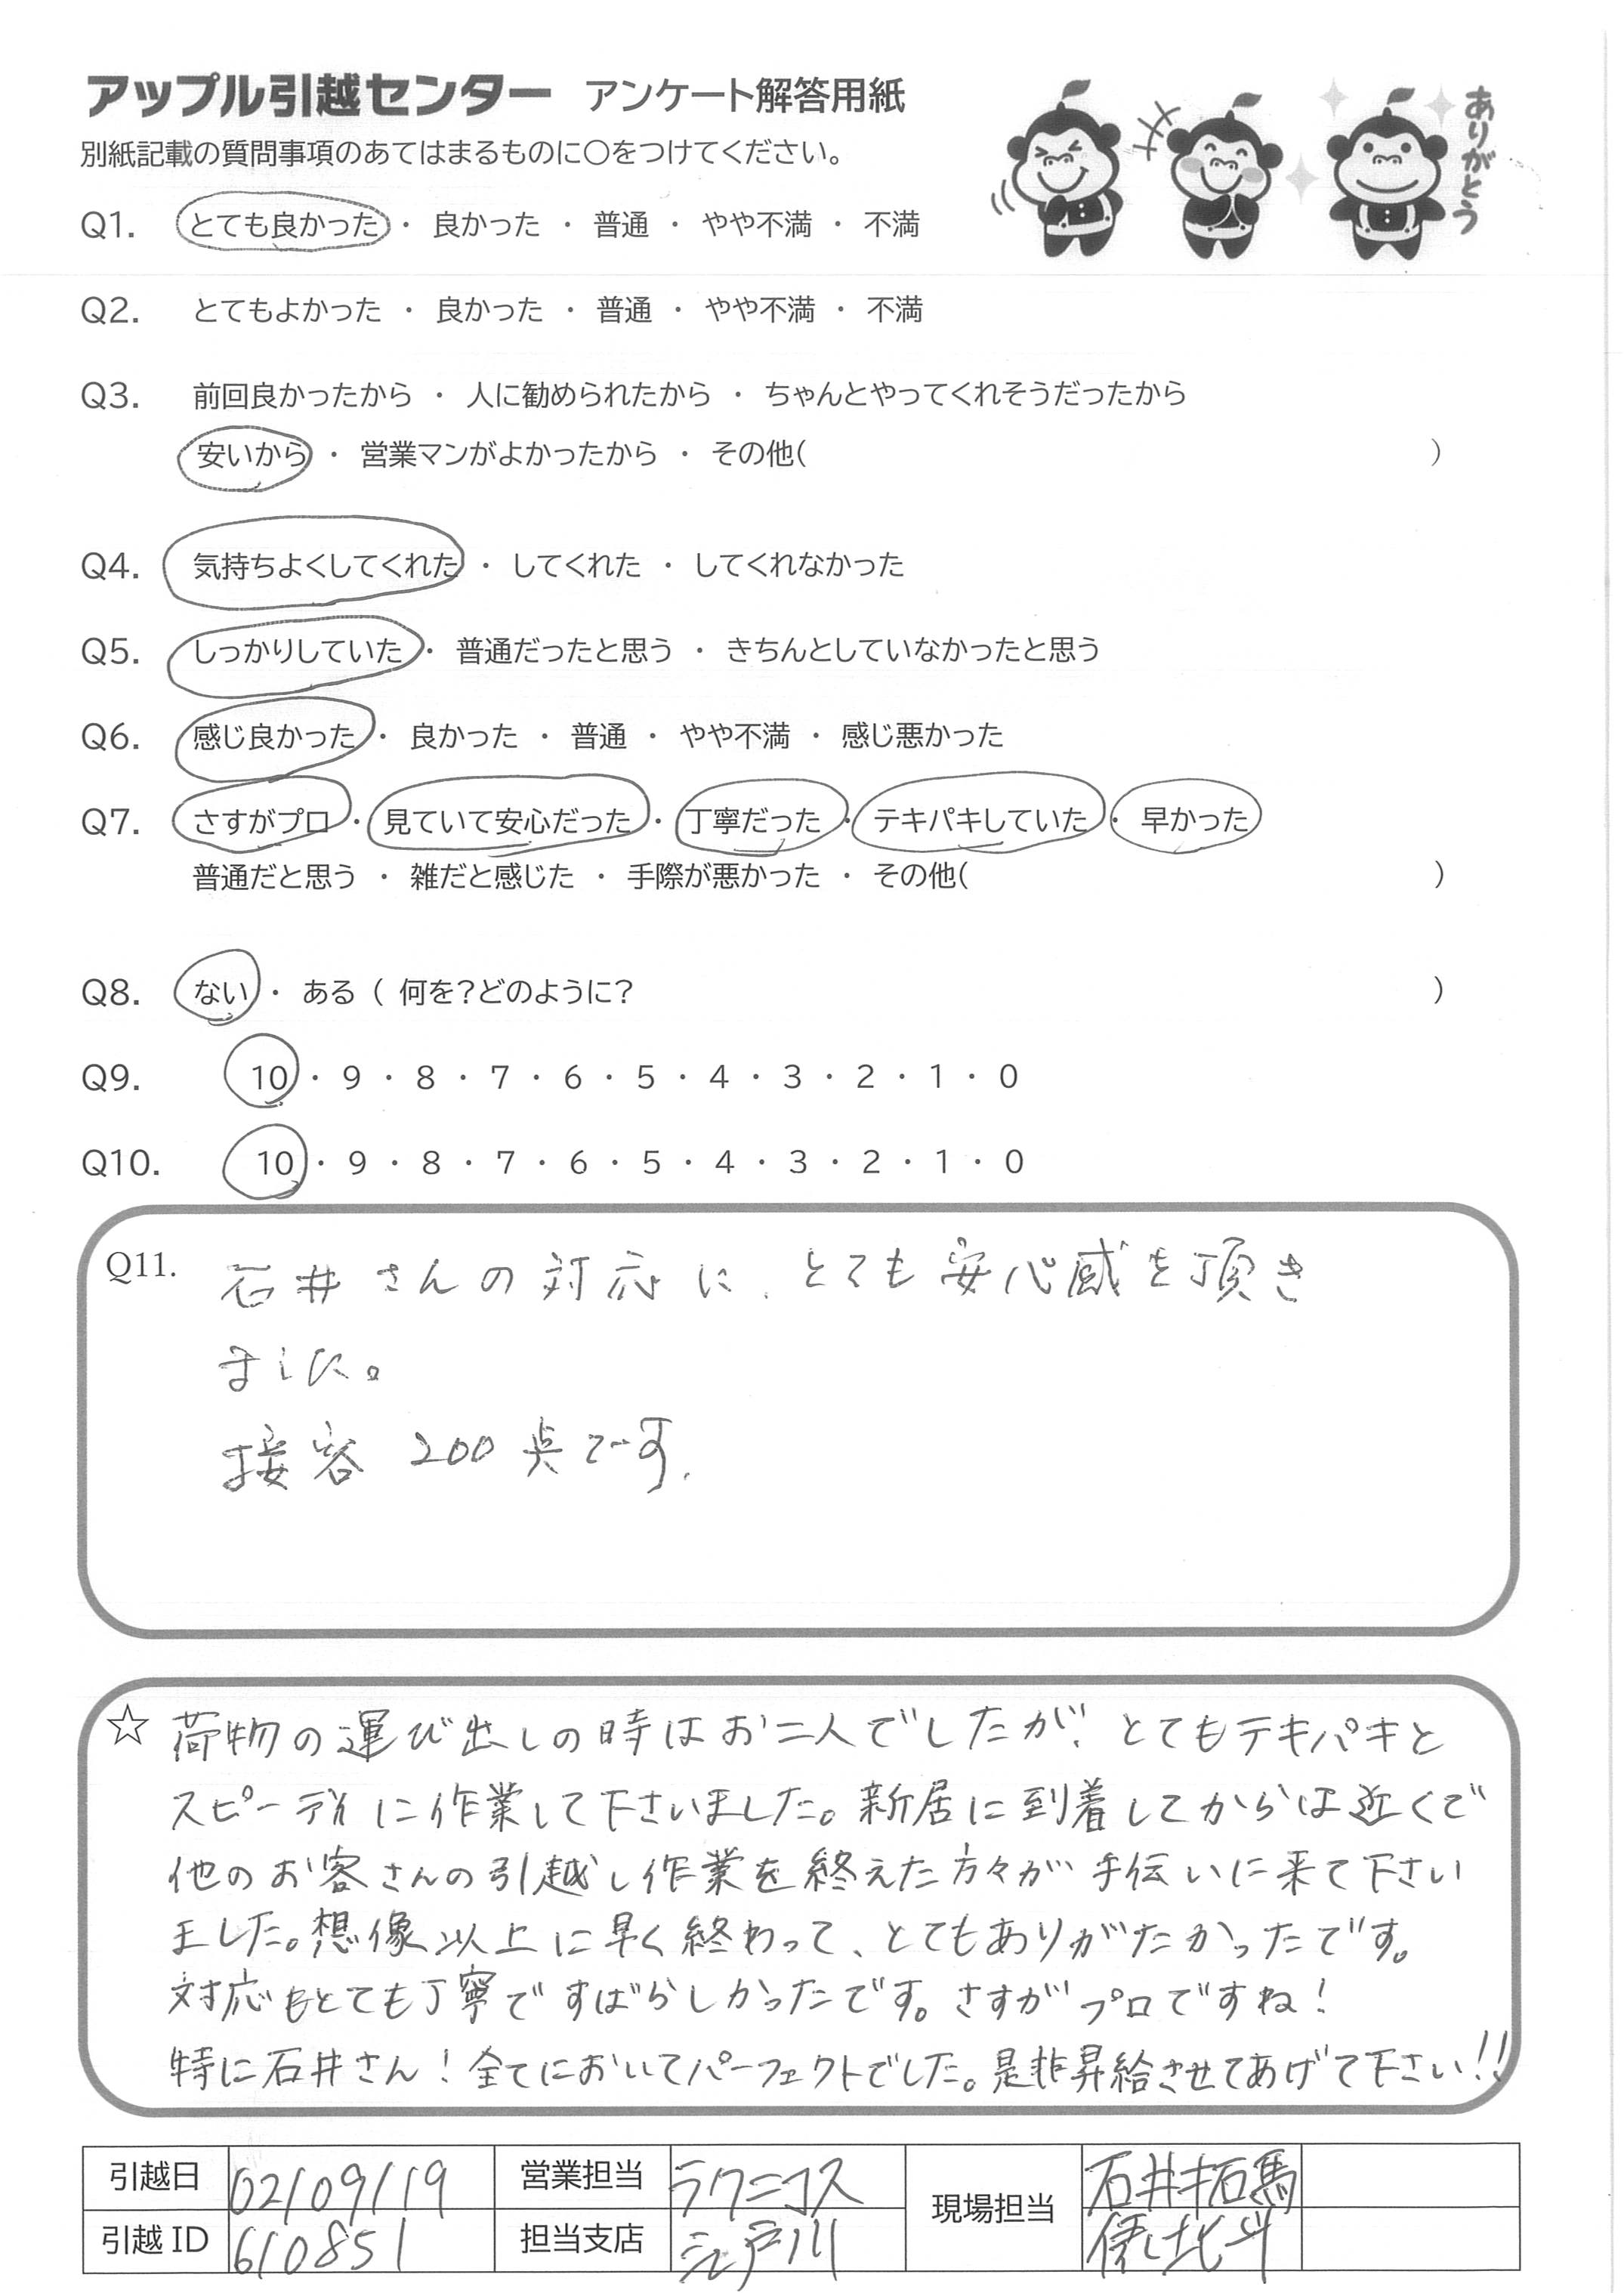 アップル引越センター アンケート解答用紙
別紙記載の質問事項のあてはまるものに○をつけてください。
ありがとう
Q1. とても良かった ・ 良かった ・ 普通 ・ やや不満 ・ 不満
Q2. とてもよかった ・ 良かった ・ 普通 ・ やや不満 ・ 不満
Q3. 前回良かったから ・ 人に勧められたから ・ ちゃんとやってくれそうだったから
安いから ・ 営業マンがよかったから ・ その他( )
Q4. 気持ちよくしてくれた ・ してくれた ・ してくれなかった
Q5. しっかりしていた ・ 普通だったと思う ・ きちんとしていなかったと思う
Q6. 感じ良かった ・ 良かった ・ 普通 ・ やや不満 ・ 感じ悪かった
Q7. さすがプロ ・ 見ていて安心だった ・ 丁寧だった ・ テキパキしていた ・ 早かった
普通だと思う ・ 雑だと感じた ・ 手際が悪かった ・ その他( )
Q8. ない ・ ある ( 何を?どのように? )
Q9. 10 ・ 9 ・ 8 ・ 7 ・ 6 ・ 5 ・ 4 ・ 3 ・ 2 ・ 1 ・ 0
Q10. 10 ・ 9 ・ 8 ・ 7 ・ 6 ・ 5 ・ 4 ・ 3 ・ 2 ・ 1 ・ 0
Q11. 石井さんの対応に、とても安心感を頂き
ました。
接客 200点です.
☆ 荷物の運び出しの時はお二人でしたが、とてもテキパキと
スピーディに作業して下さいました。新居に到着してからは近くで
他のお客さんの引越し作業を終えた方々が手伝いに来て下さい
ました。想像以上に早く終わって、とてもありがたかったです。
対応もとても丁寧ですばらしかったです。さすがプロですね!
特に石井さん!全てにおいてパーフェクトでした。是非昇給させてあげて下さい!!
引越日 02/09/19 営業担当 ラクニコス 現場担当 石井拓馬
引越ID 610851 担当支店 江戸川 北斗